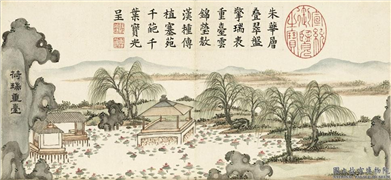 朱華層
疊翠盤
擎瑞表
重臺雲
錦瑩敷
漢種傳
植塞苑
千葩千
葉寶光
呈
荷瑞重臺